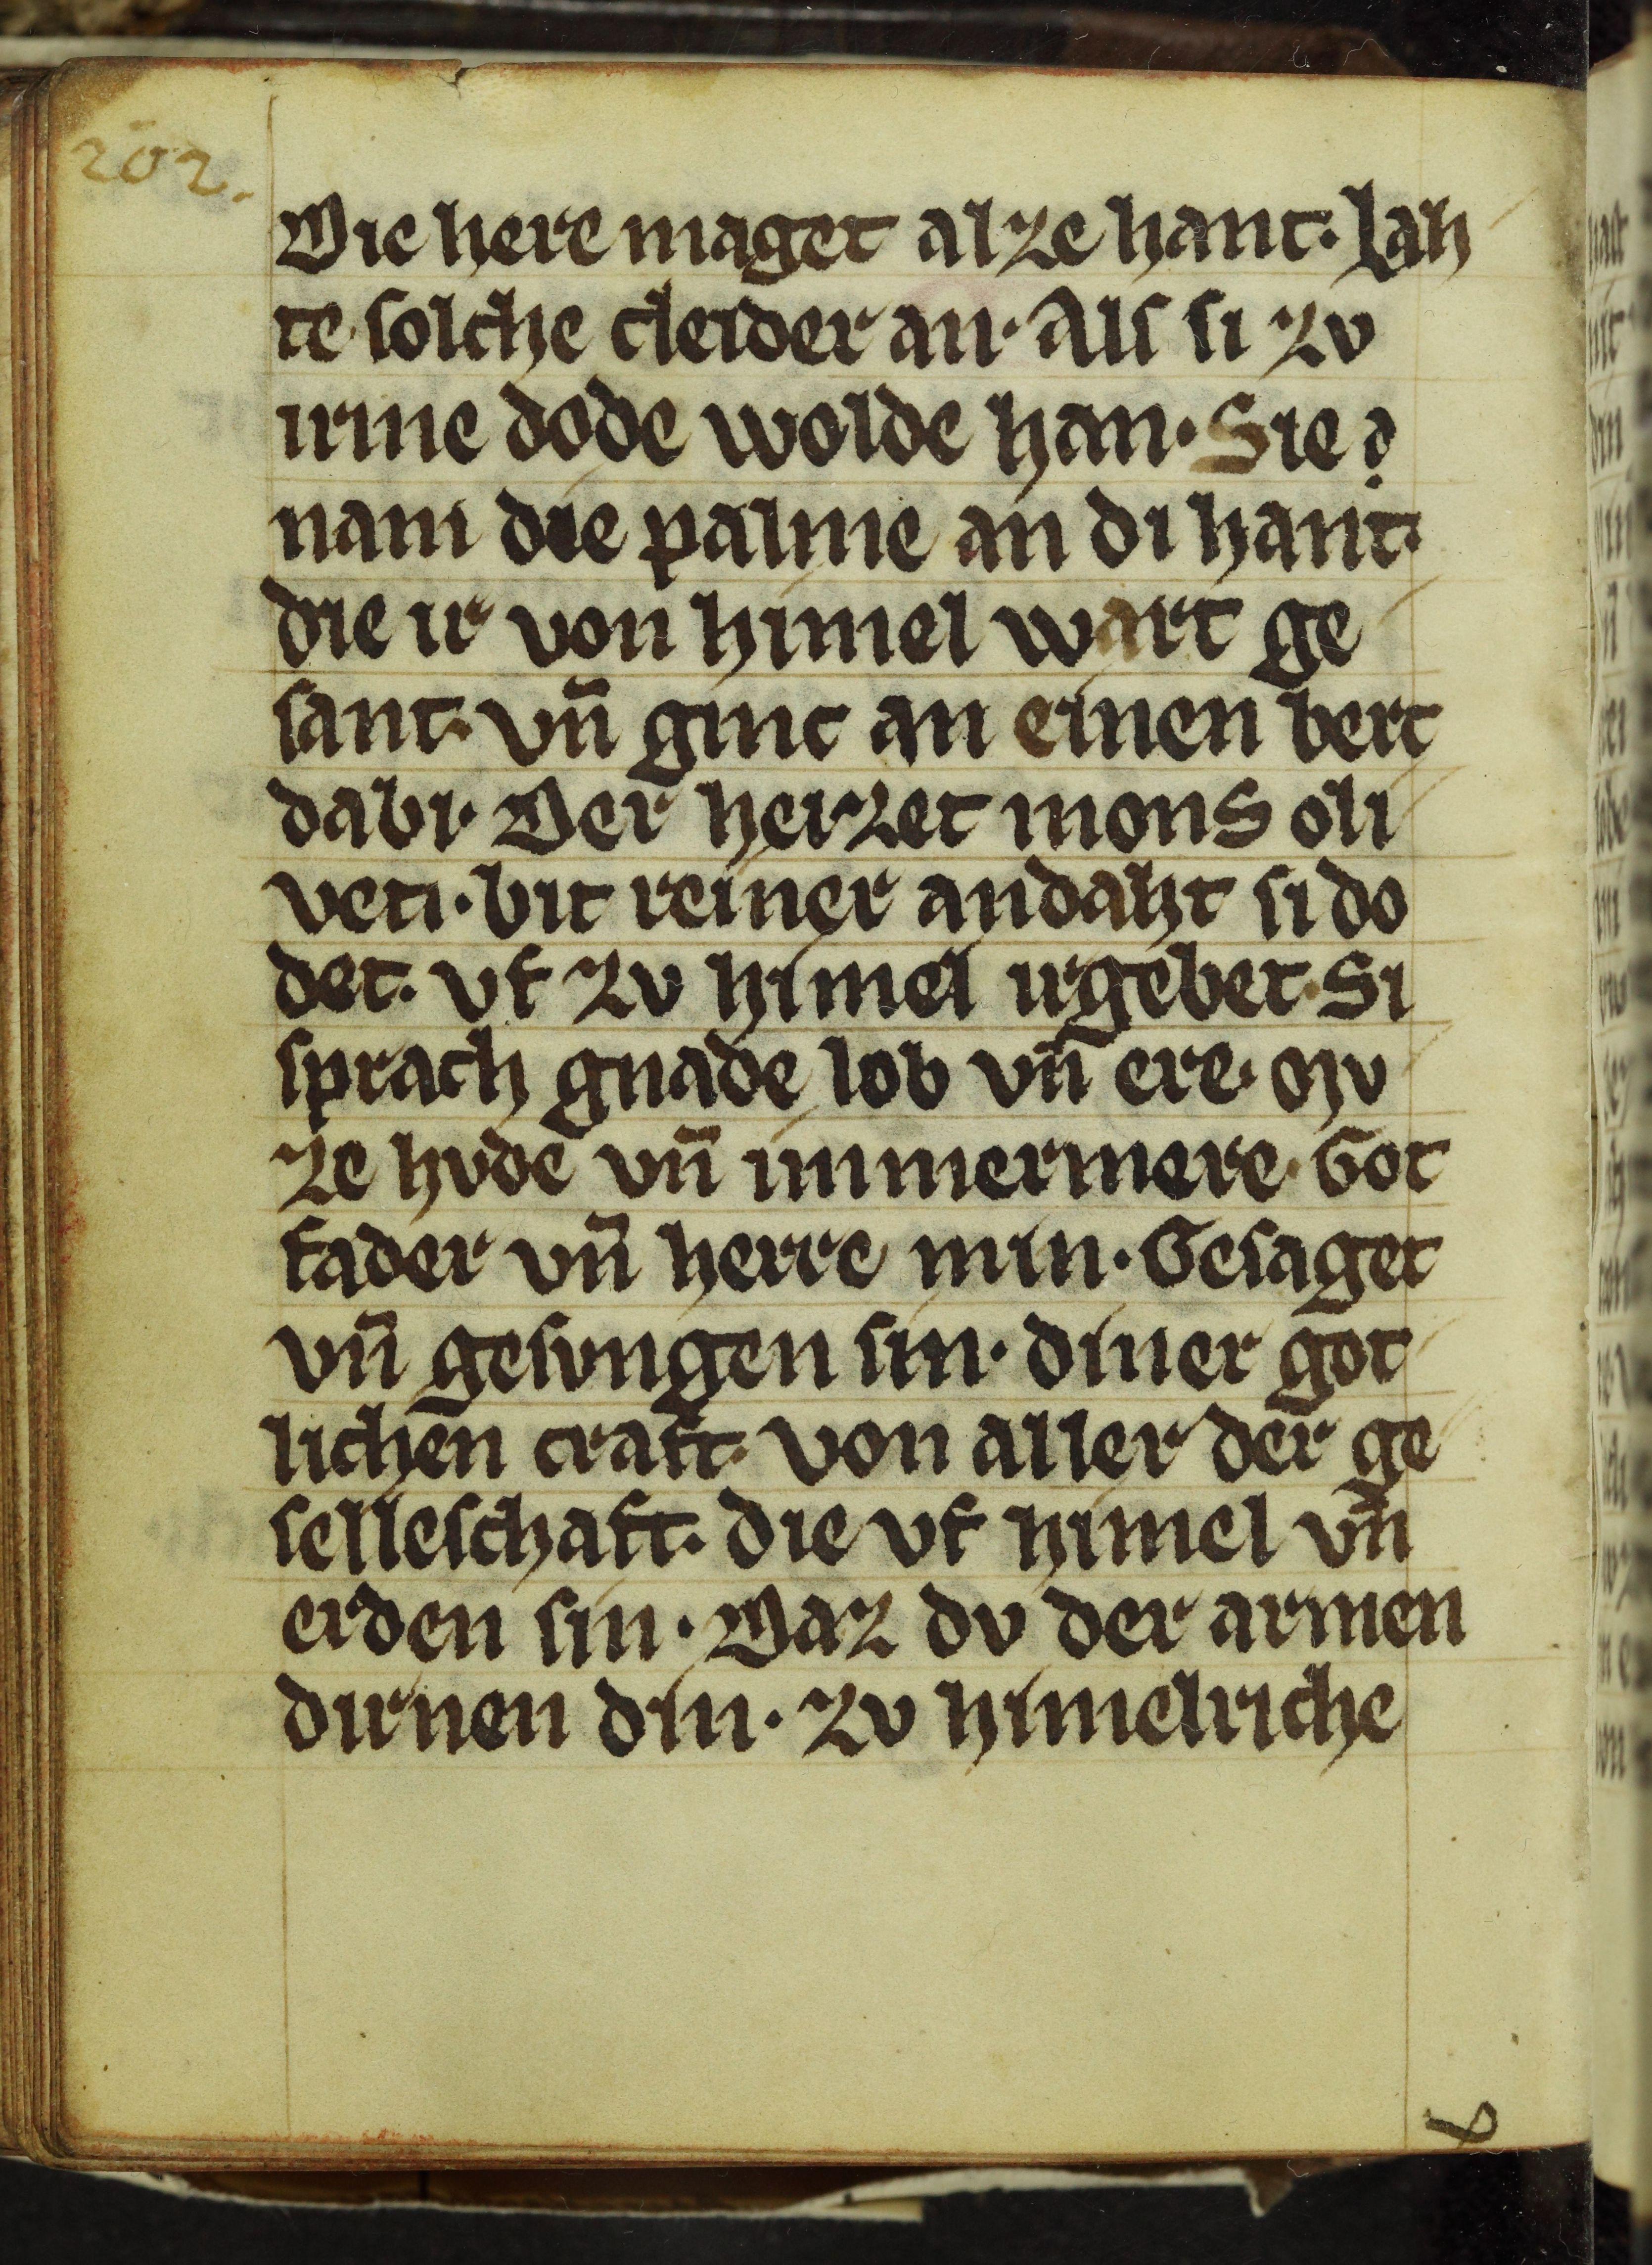 202.
Die here maget al ze hant. Lah
te solche cleider an. Als si zv
irme dode wolde han. Sie
nam die palme an di hant.
die ir von himel wart ge
sant. vn̄ ginc an einen berc
dabi. Der heizet mons oli
veti. bit reiner andaht si do
det. vf zv himel ir gebet. Si
sprach gnade lob vn̄ ere. Nv
ze hvde vn̄ immermere. Got
fader vn̄ herre min. Gesaget
vn̄ gesvngen sin. diner got
lichen craft. von aller der ge
selleschaft. die vf himel vn̄
erden sin. Daz dv der armen
dirnen din. zv himelriche